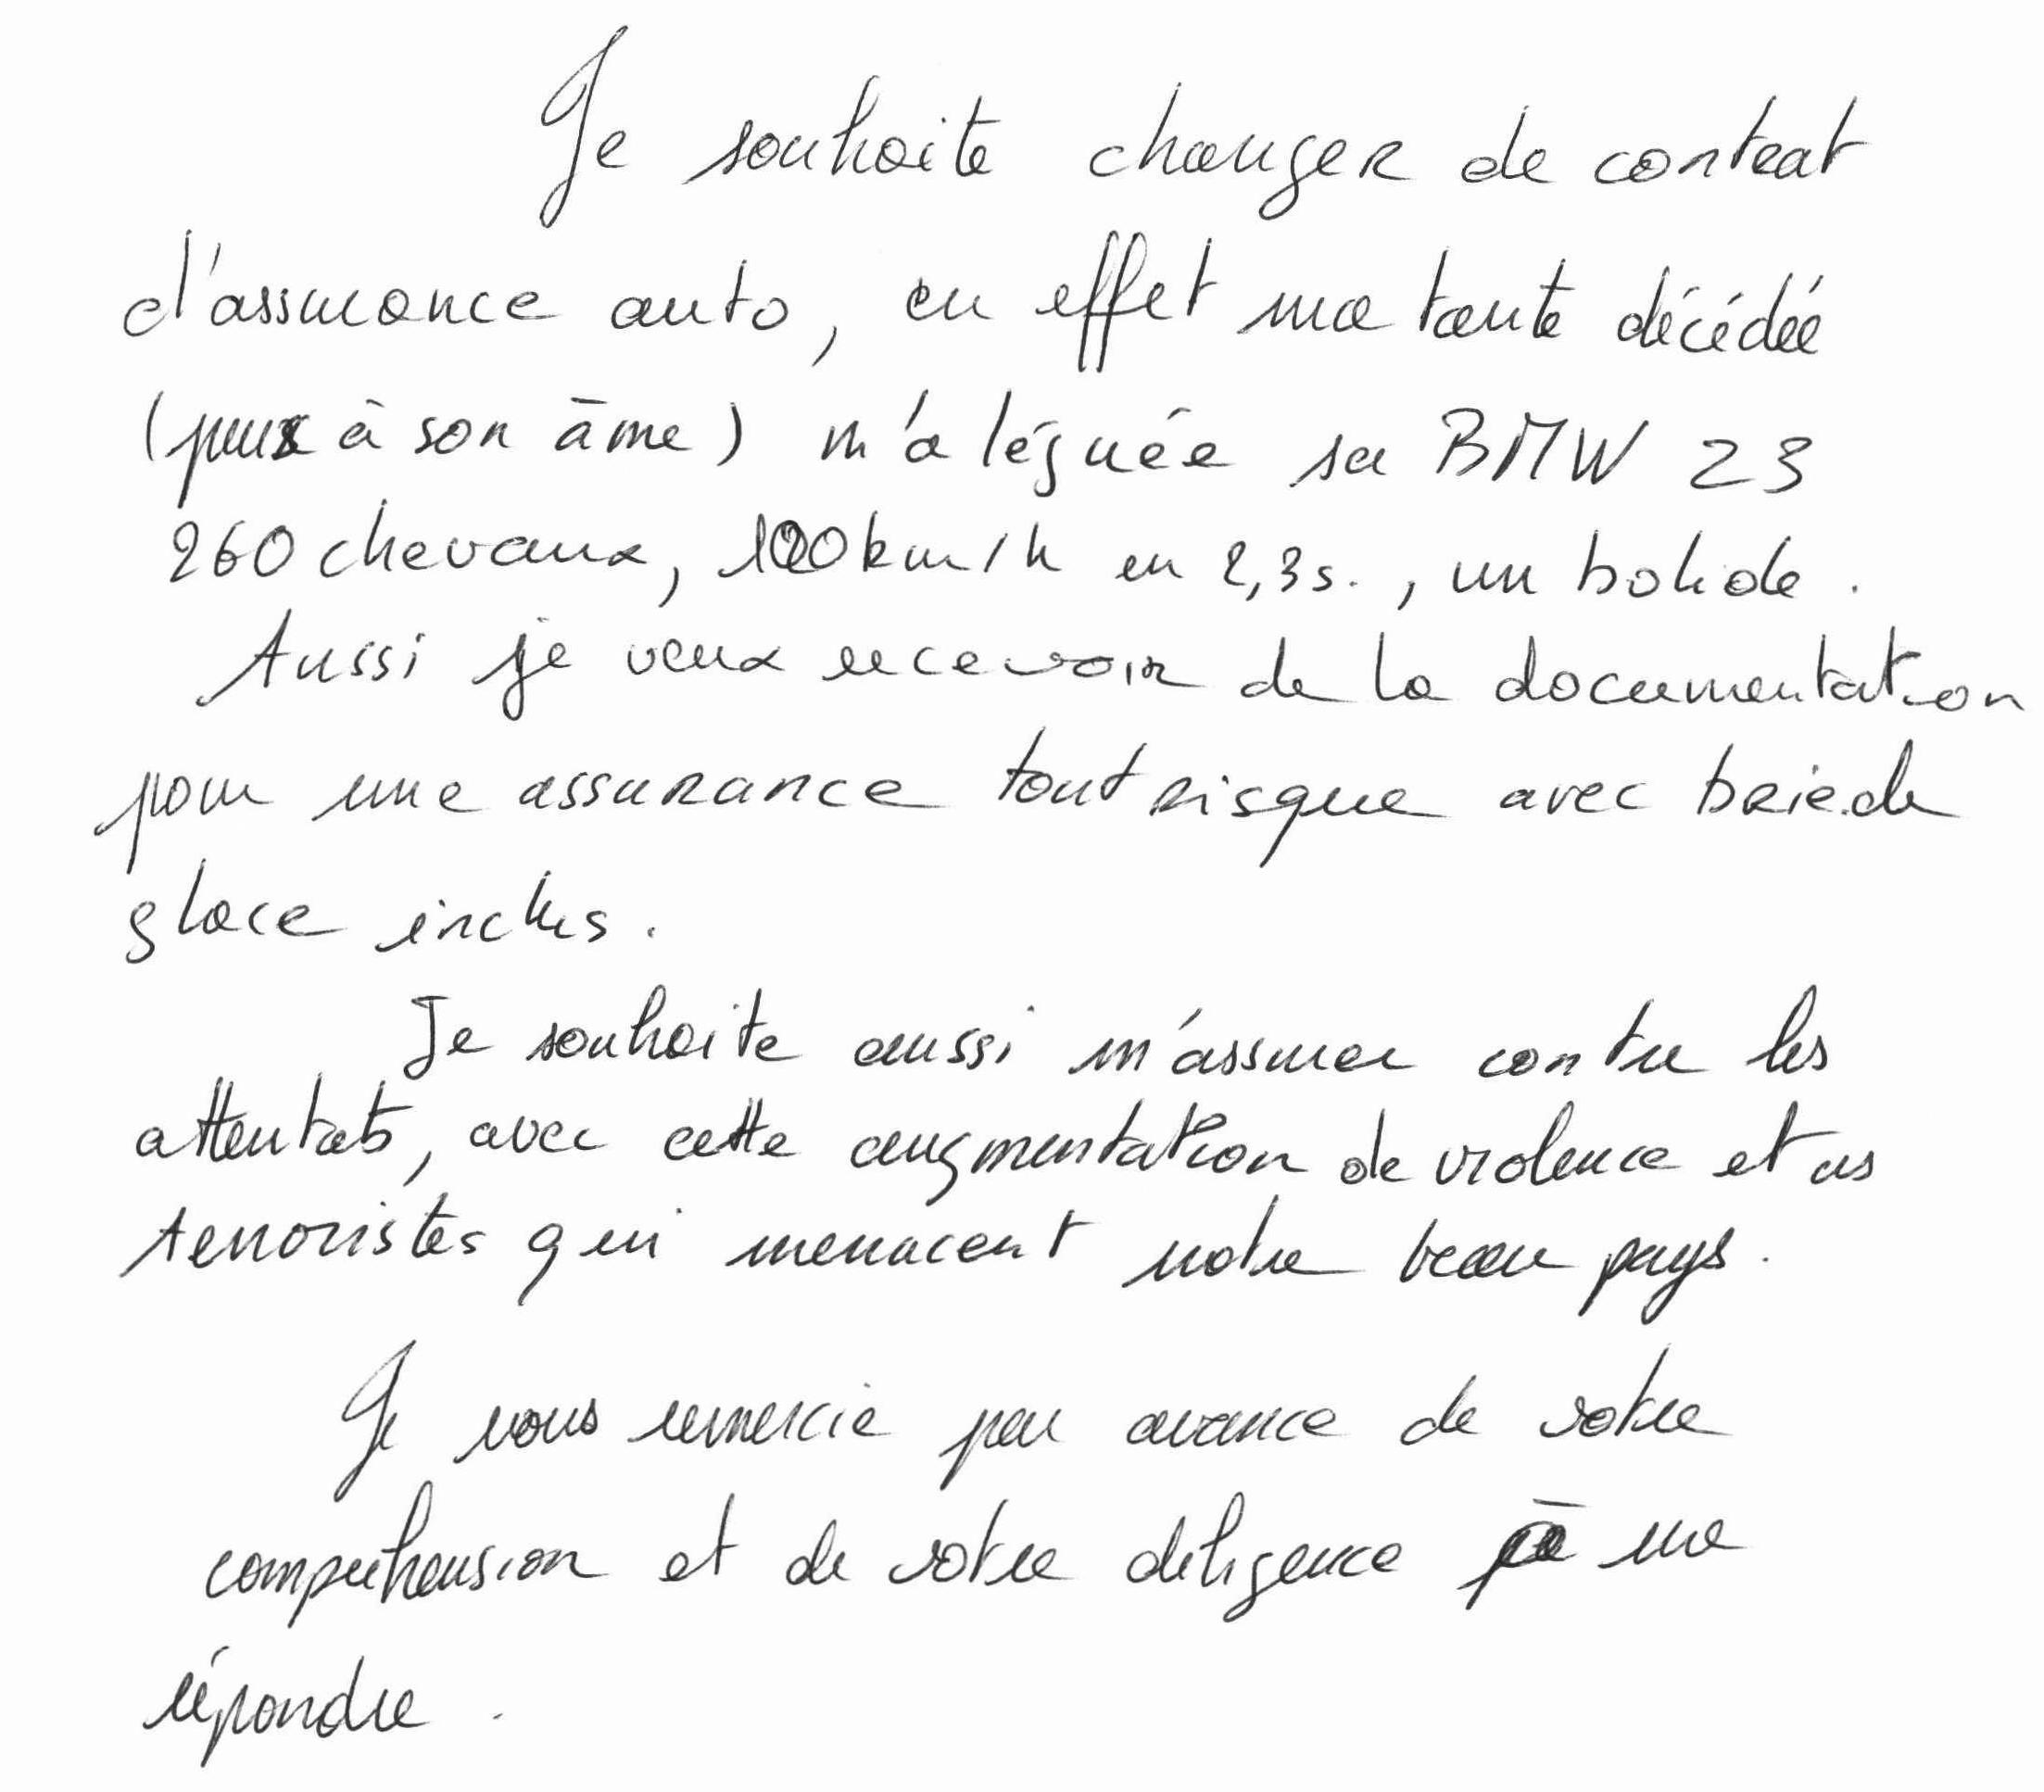 Je souhaite changer de contrat
d'assurance auto, en effet ma tante décédée
(paix à son âme) m'a léguée sa BMW Z3
260 chevaux, 100km/h en 2,3s., un bolide.
Aussi je veux recevoir de la documentation
pour une assurance tout risque avec brie de
glace inclus.
Je souhaite aussi m'assurer contre les
attentats, avec cette augmentation de violence et ces
terroristes qui menacent notre beau pays.
Je vous remercie par avance de votre
compréhension et de votre diligence à me
répondre.